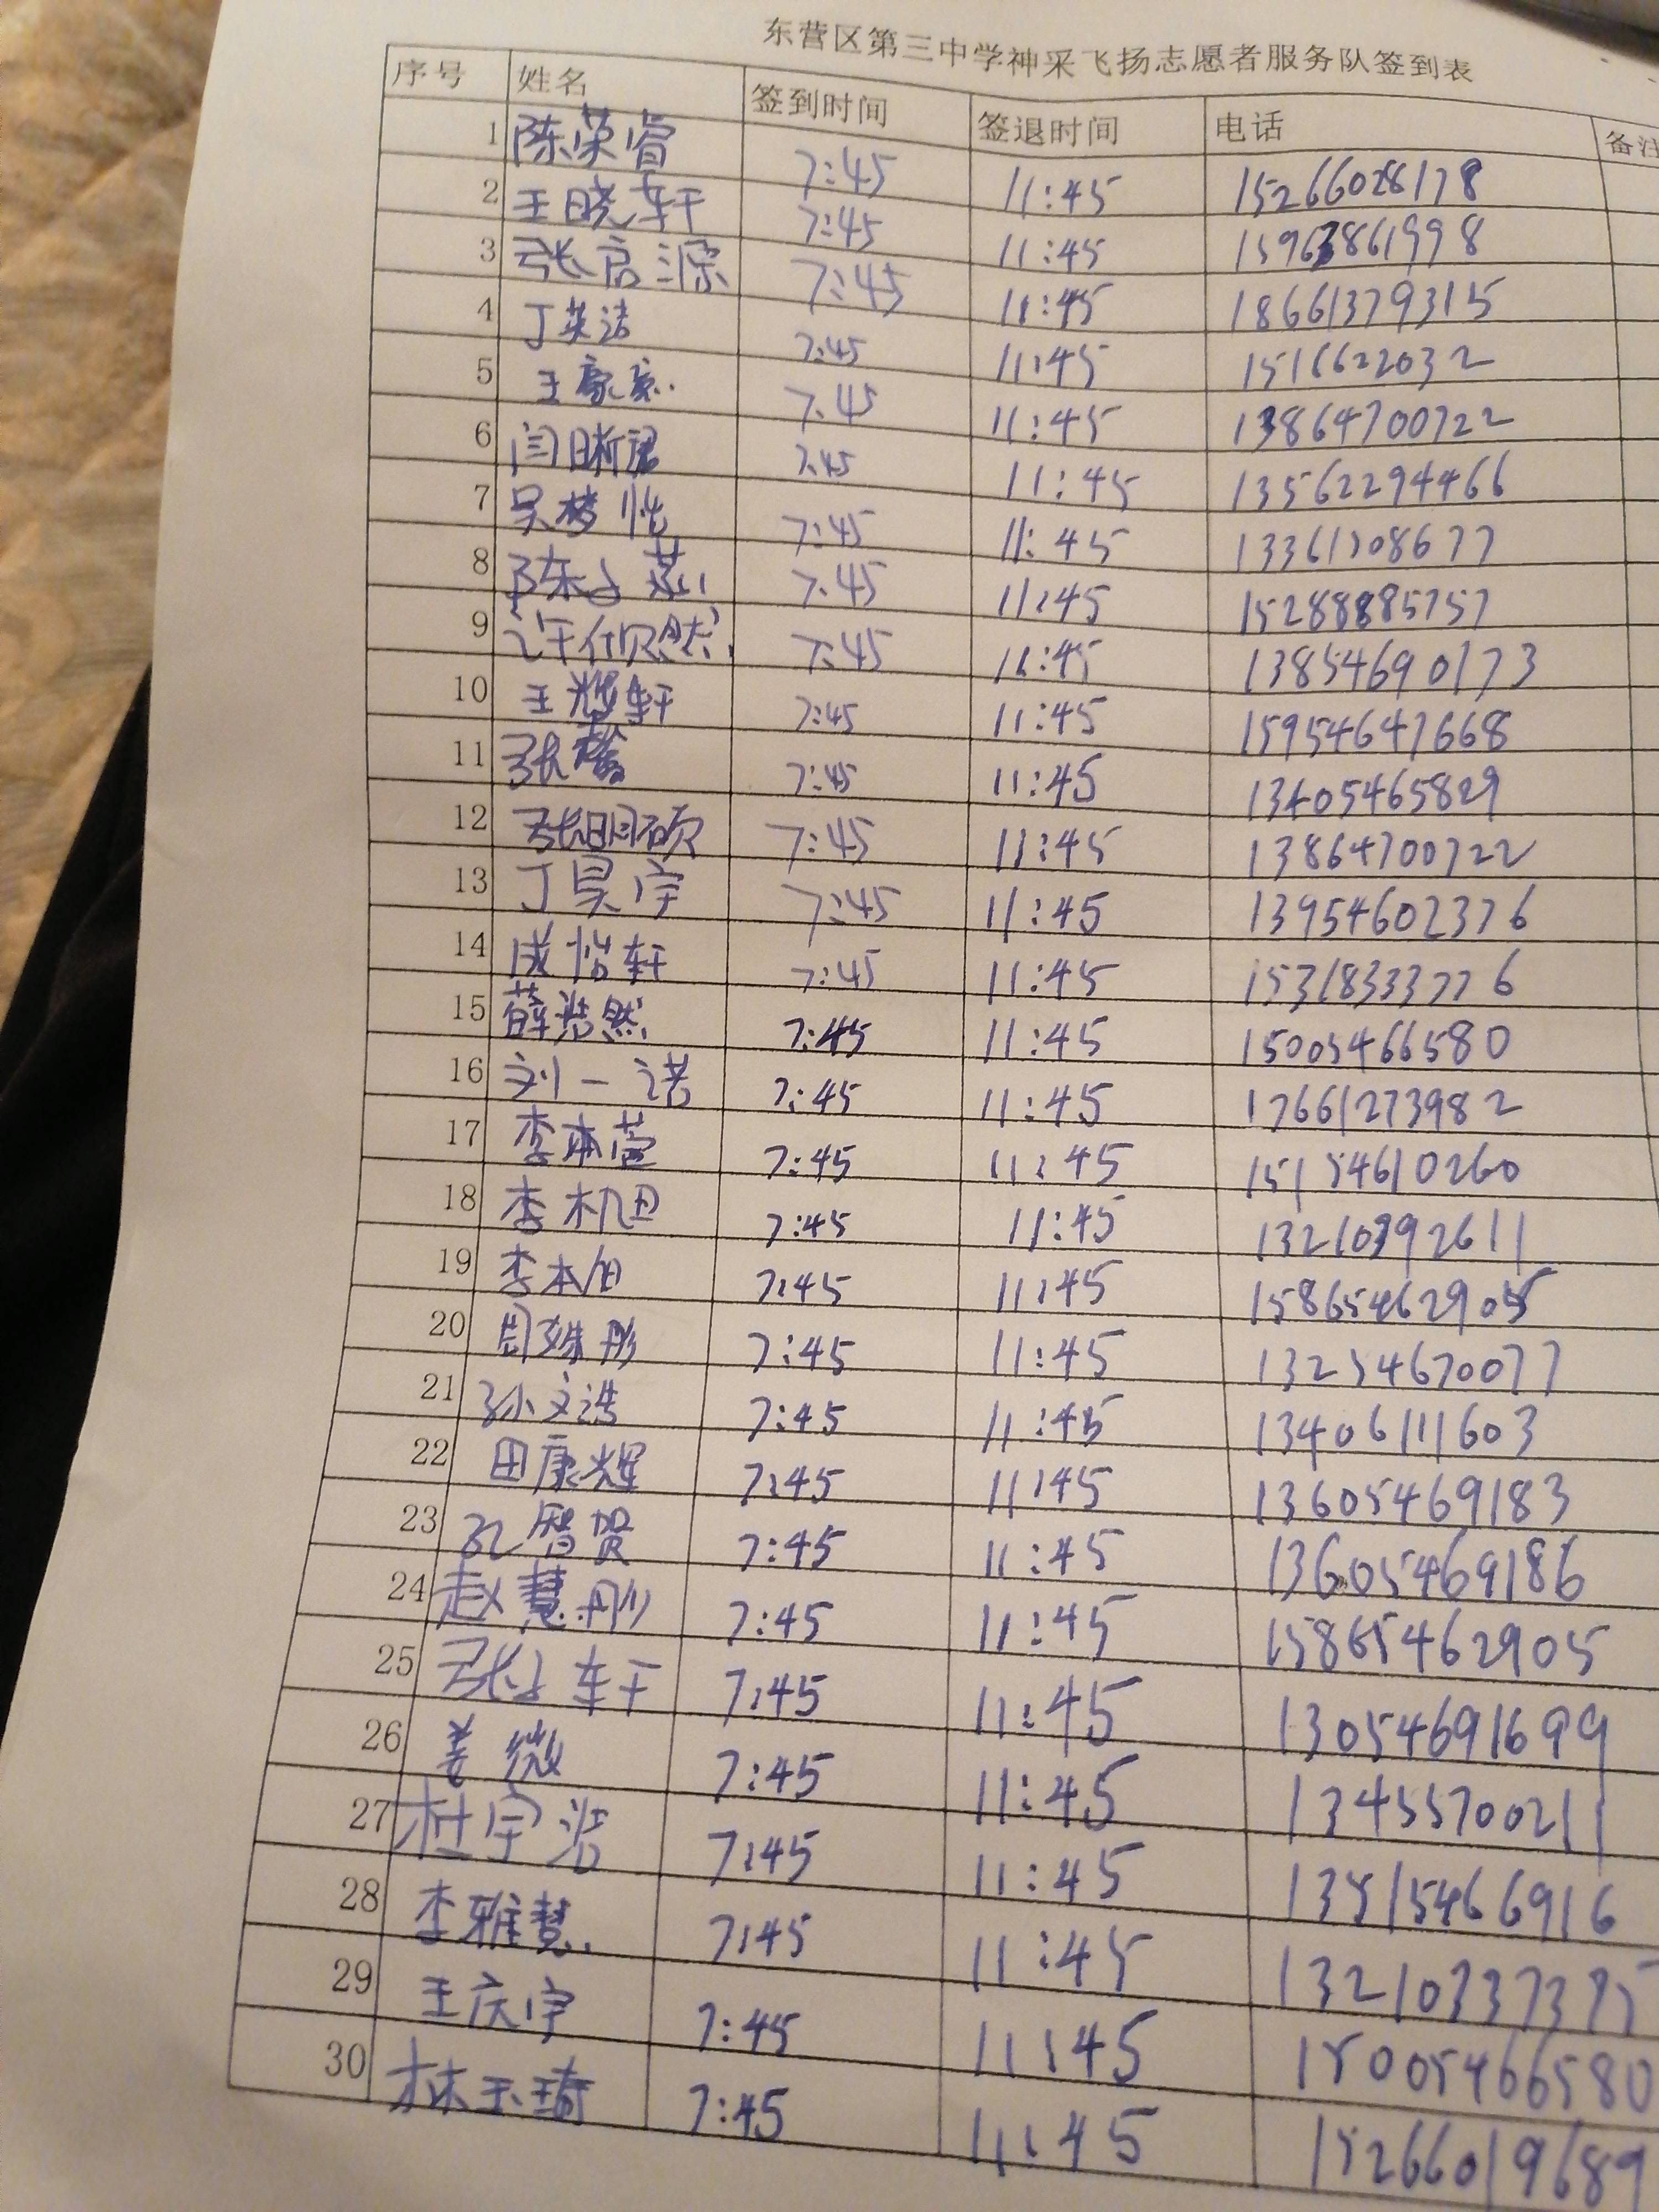 东营区第三中学神采飞扬志愿者服务队签到表
序号 姓名 签到时间 签退时间 电话 备注
1 陈荣睿 7:45 11:45 15266028178
2 王晓轩 7:45 11:45 15963861998
3 张启源 7:45 11:45 18661379315
4 丁英洁 7:45 11:45 1516622032
5 王家 7:45 11:45 13864700722
6 闫晰 7:45 11:45 13562294466
7 吴梦恍 7:45 11:45 13361208677
8 陈子 7:45 11:45 15288885757
9 许欣然 7:45 11:45 13854690173
10 王耀轩 7:45 11:45 15954647668
11 张 7:45 11:45 13405465829
12 张明硕 7:45 11:45 13864700722
13 丁昊宇 7:45 11:45 13954602376
14 成怡轩 7:45 11:45 15318333776
15 薛浩然 7:45 11:45 15005466580
16 刘一诺 7:45 11:45 17661273982
17 李本萱 7:45 11:45 15154610260
18 李 7:45 11:45 13210392611
19 李本旭 7:45 11:45 15865462905
20 周姝彤 7:45 11:45 13254670077
21 孙文浩 7:45 11:45 13406111603
22 田康辉 7:45 11:45 13605469183
23 孔智贺 7:45 11:45 13605469186
24 赵慧彤 7:45 11:45 15865462905
25 张子轩 7:45 11:45 13054691699
26 姜微 7:45 11:45 13455700211
27 杜宇浩 7:45 11:45 13515466916
28 李雅慧 7:45 11:45
29 王庆宇 7:45 11:45 15005466580
30 林玉琦 7:45 11:45 15266019689